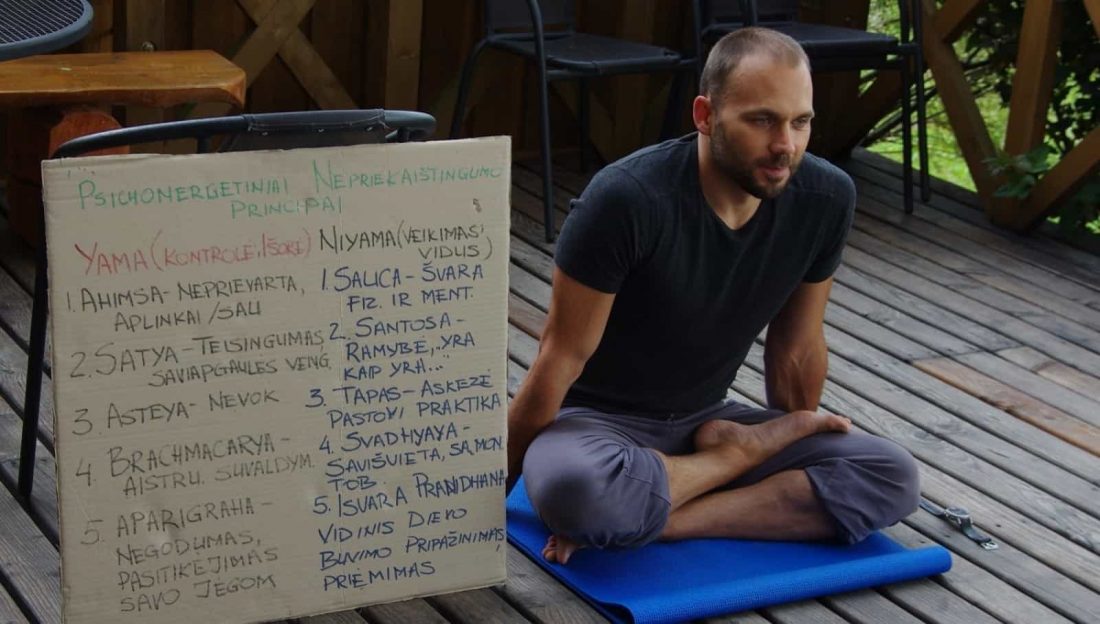 PSICHONERGETINIAI NEPRIEKAIŠTINGUMO
PRINCIPAI
YAMA (KONTROLĖ, IŠORĖ)
1. AHIMSA - NEPRIEVARTA,
APLINKAI / SAU
2. SATYA - TEISINGUMAS,
SAVIAPGAULĖS VENG.
3. ASTEYA - NEVOK
4. BRACHMACARYA -
AISTRŲ SUVALDYM.
5. APARIGRAHA -
NEGODUMAS,
PASITIKĖJIMAS
SAVO JĖGOM
NIYAMA (VEIKIMAS,
VIDUS)
1. SAUCA - ŠVARA
FIZ. IR MENT.
2. SANTOSA -
RAMYBĖ, „YRA
KAIP YRA...
3. TAPAS - ASKEZĖ
PASTOVI PRAKTIKA
4. SVADHYAYA -
SAVIŠVIETA, SĄMON.
TOB.
5. ISVARA PRANIDHANA
VIDINIS DIEVO
BUVIMO PRIPAŽINIMAS
PRIĖMIMAS